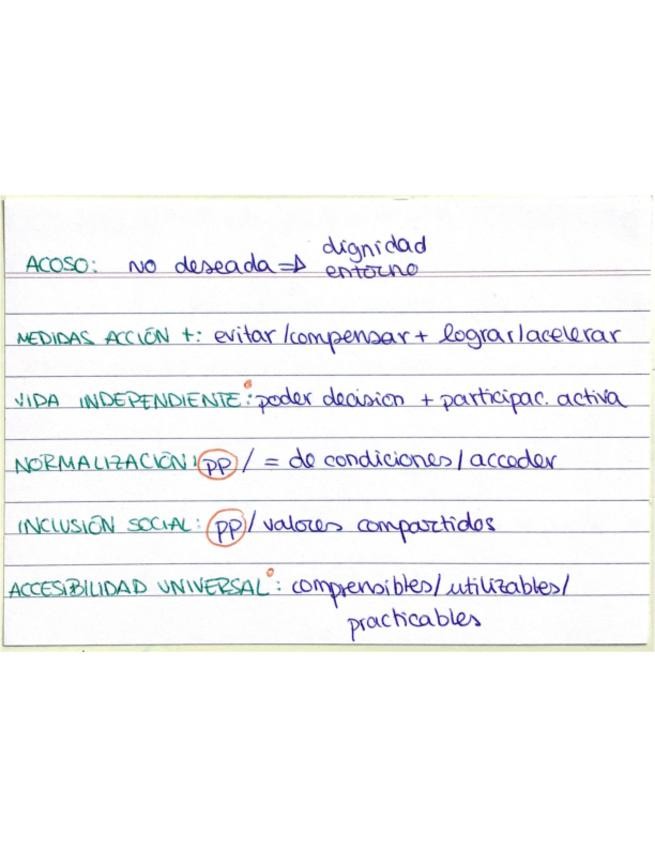 ACOSO: NO deseada ⇒ dignidad
entorno
MEDIDAS ACCIÓN +: evitar/compensar + lograr/acelerar
VIDA INDEPENDIENTE: poder decision + participac. activa
NORMALIZACIÓN: PP / = de condiciones / acceder
INCLUSIÓN SOCIAL: PP / valores compartidos
ACCESIBILIDAD UNIVERSAL: comprensibles/utilizables/
practicables